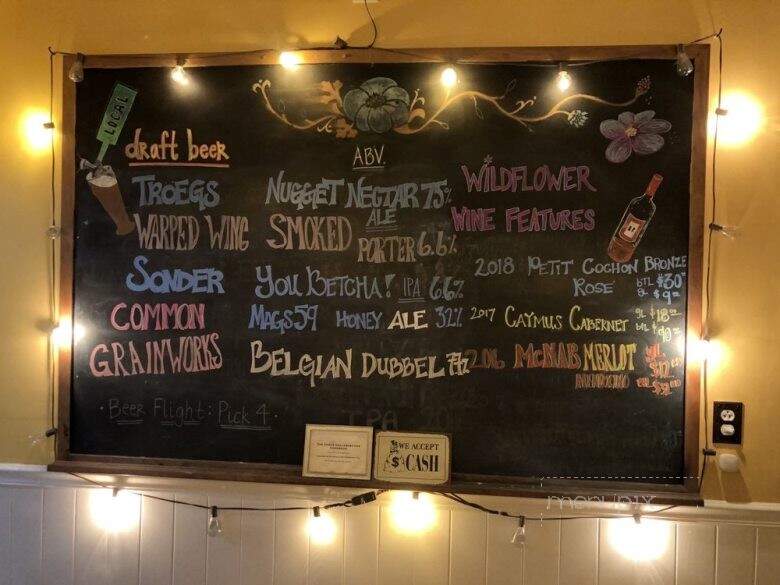 LOCAL
draft beer
ABV.
TROEGS NUGGET NECTAR ALE 7.5%
WARPED WING SMOKED PORTER 6.6%
SONDER YOU BETCHA! IPA 6.6%
COMMON MAGS 59 HONEY ALE 3.2%
GRAINWORKS BELGIAN DUBBEL
· Beer Flight: Pick 4 ·
WILDFLOWER
WINE FEATURES
2018 PETIT COCHON BRONZE
ROSE BTL $30
GL $9
2017 CAYMUS CABERNET GL $18
MCNAB MERLOT
IPA
WE ACCEPT
$ CASH
menupix